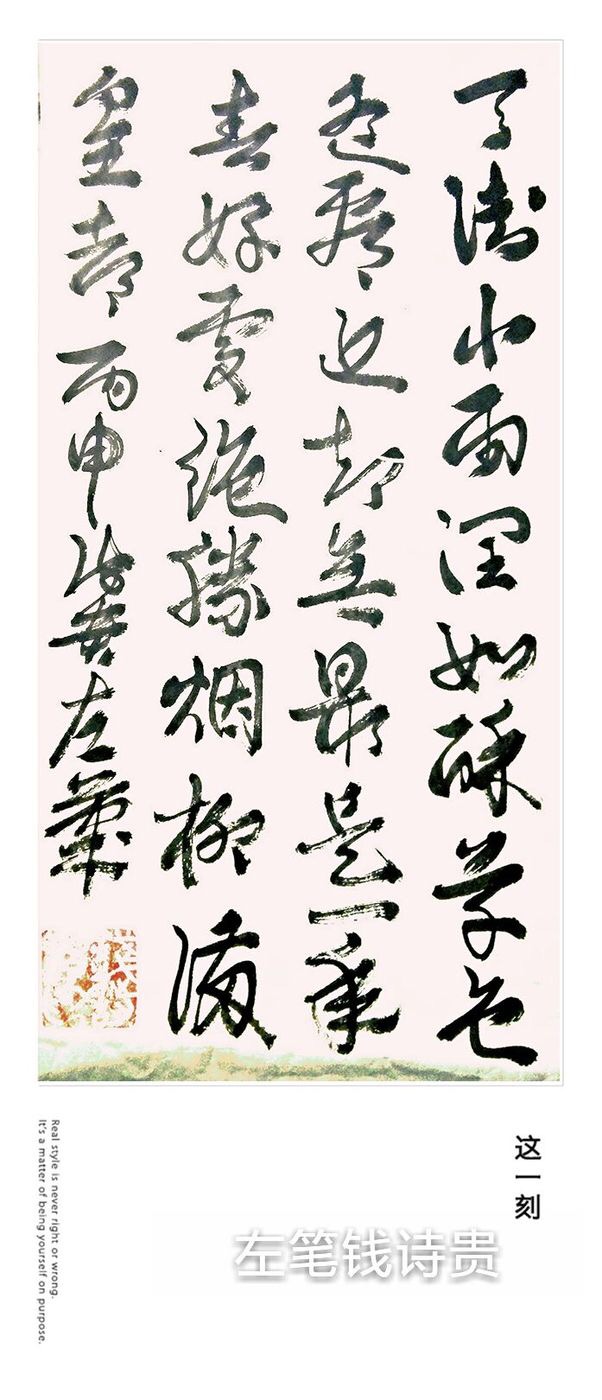 天街小雨润如酥草色
遥看近却無最是一年
春好處绝勝烟柳满
皇都丙申冀左筆
这一刻
左笔钱诗贵
Real style is never right or wrong.
It's a matter of being yourself on purpose.